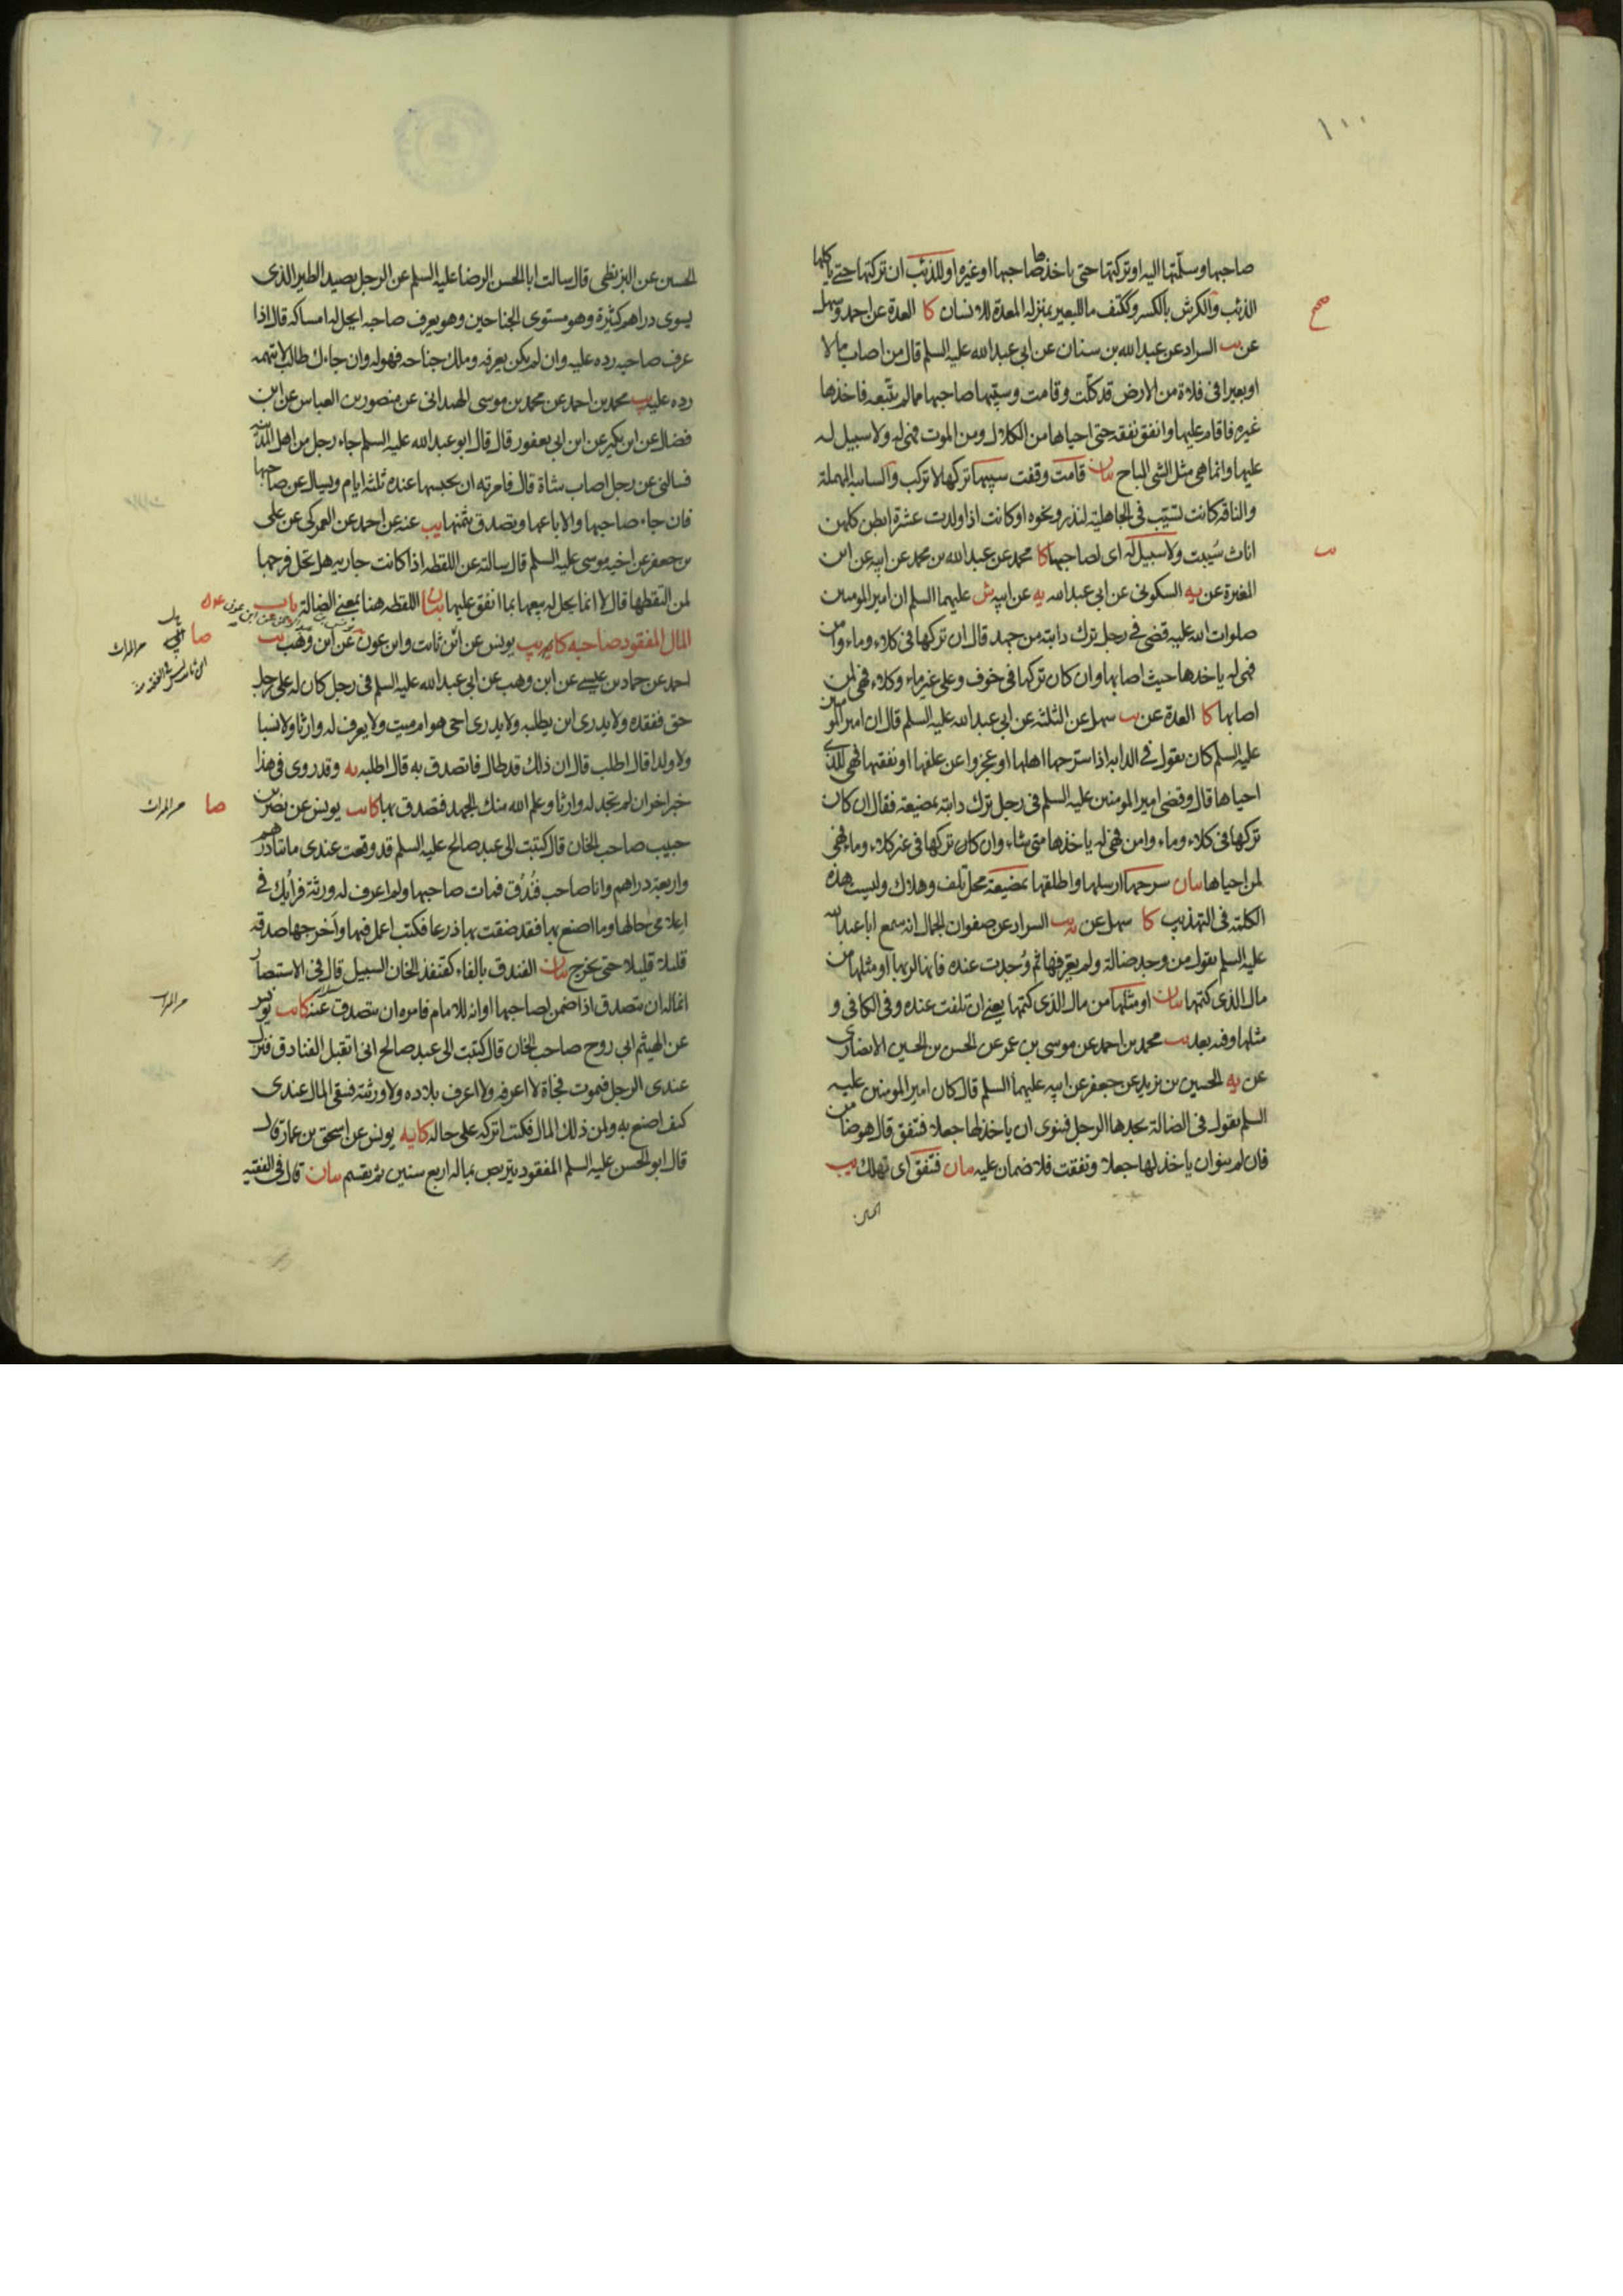 ١٠٠
صاحبها وسلّمتها اليه او تركتها حتى ياخذها صاحبها او غيره او للذئب ان تركتها حتى ياكلها
الذئب والكرش بالكسر وككتف ما للبعير بمنزله المعدة للانسان كا العدة عن احمد وسهل
صح
عن السراد عن عبد الله بن سنان عن ابي عبد الله عليه السلم قال من اصاب مالا
او بعيرا في فلاة من الارض قد كلّت وقامت وسيّبها صاحبها مما لم يتّبعه فاخذها
غيره فاقام عليها وانفق نفقه حتى احياها من الكلال ومن الموت فهى له ولا سبيل له
عليها وانما هى مثل الشى المباح بيان قامت وقفت سيبها تركها لا تركب والسايبه المهملة
والناقه كانت تسيّب فى الجاهلية لنذر ونحوه او كانت اذا ولدت عشرة ابطن كلهن
اناث سُيبت ولا سبيل له اى لصاحبها كا محمد عن عبد الله بن محمد عن ابيه عن ابن
المغيرة عن يه السكونى عن ابى عبد الله يه عن ابيه ش عليهما السلم ان امير المومنين
صلوات الله عليه قضى فى رجل ترك دابته من جهد قال ان تركها فى كلاء وماء وامن
فهى له ياخذها حيث اصابها وان كان تركها فى خوف وعلى غير ماء وكلاء فهى لمن
اصابها كا العدة عن يب سهل عن الثلثه عن ابى عبد الله عليه السلم قال ان امير المومنين
عليه السلم كان يقول فى الدابه اذا سرحها اهلها او عجزوا عن علفها او نفقتها فهى للذى
احياها قال وقضى امير المومنين عليه السلم فى رجل ترك دابته بمضيعة فقال ان كان
تركها فى كلاء وماء وامن فهى له ياخذها متى شاء وان كان تركها فى غير كلاء وماء فهى
لمن احياها بيان سرحها ارسلها واطلقها بمضيعة محل تلف وهلاك وليست هذه
الكلمة فى التهذيب كا سهل عن يب السراد عن صفوان الجمال انه سمع ابا عبد الله
عليه السلم يقول من وجد ضالة ولم يعرفها ثم وُجدت عنده فانها لربها او مثلها من
مال الذى كتمها بيان او مثلها من مال الذى كتمها يعنى ان تلفت عنده وفى الكافى و
مثلها وفيه بعد يب محمد بن احمد عن موسى بن عمر عن الحسن بن الحسين الانصارى
عن يه الحسين بن يزيد عن جعفر عن ابيه عليهما السلم قال كان امير المومنين عليه
السلم يقول فى الضالة يجدها الرجل فينوى ان ياخذ لها جعلا فتنفق قال هو ضامن
فان لم ينو ان ياخذ لها جعلا ونفقت فلا ضمان عليه بيان فتنفق اى تهلك يب
الحسين عن البزنطى قال سالت ابا الحسن الرضا عليه السلم عن الرجل يصيد الطير الذى
يسوى دراهم كثيرة وهو مستوى الجناحين وهو يعرف صاحبه ايحل له امساكه قال اذا
عرف صاحبه رده عليه وان لم يكن يعرفه وملك جناحه فهو له وان جاءك طالب لا تتهمه
رده عليه يب محمد بن احمد عن محمد بن موسى الهمدانى عن منصور بن العباس عن ابن
فضال عن ابن بكير عن ابن ابى يعفور قال قال ابو عبد الله عليه السلم جاء رجل من اهل المدينة
فسالنى عن رجل اصاب شاة قال فامرته ان يحبسها عنده ثلثه ايام ويسال عن صاحبها
فان جاء صاحبها والا باعها وتصدق بثمنها يب عنه عن احمد عن العمركى عن على
بن جعفر عن اخيه موسى عليه السلم قال سالته عن اللقطه اذا كانت جاريه هل تحل فرجها
لمن التقطها قال لا انما يحل له بيعها بما انفق عليها بيان اللقطه هنا بمعنى الضالة باب
المال المفقود صاحبه كا يه يب يونس عن ابن ثابت وابن عون عن ابن وهب يب
صا
احمد عن حماد بن عيسى عن ابن وهب عن ابى عبد الله عليه السلم فى رجل كان له على رجل
حق ففقده ولا يدرى اين يطلبه ولا يدرى احى هو ام ميت ولا يعرف له وارثا ولا نسبا
ولا ولدا قال اطلب قال ان ذلك قد طال فاتصدق به قال اطلبه يه وقد روى فى هذا
خبر اخر ان لم تجد له وارثا وعلم الله منك الجهد فتصدق بها كا يب يونس عن نصر بن
صا
حبيب صاحب الخان قال كتبت الى عبد صالح عليه السلم قد وقعت عندى مائتا درهم
واربعة دراهم وانا صاحب فُندُق فمات صاحبها ولم اعرف له ورثة فرايك فى
اعلامى حالها وما اصنع بها فقد ضقت بها ذرعا فكتب اعمل فيها واخرجها صدقه
قليلا قليلا حتى يخرج بيان الفندق بالفاء كقنفذ الخان السبيل قال فى الاستبصار
انما له ان يتصدق اذا ضمن لصاحبها او انه للامام فامره ان يتصدق عنه كا يب يونس
عن الهيثم ابى روح صاحب الخان قال كتبت الى عبد صالح انى اتقبل الفنادق فينزل
عندى الرجل فيموت فجاة لا اعرفه ولا اعرف بلاده ولا ورثته فيبقى المال عندى
كيف اصنع به ولمن ذلك المال فكتب اتركه على حاله كا يه يونس عن اسحق بن عمار قال
قال ابو الحسن عليه السلم المفقود يتربص بماله اربع سنين ثم يقسم بيان قال فى الفقيه